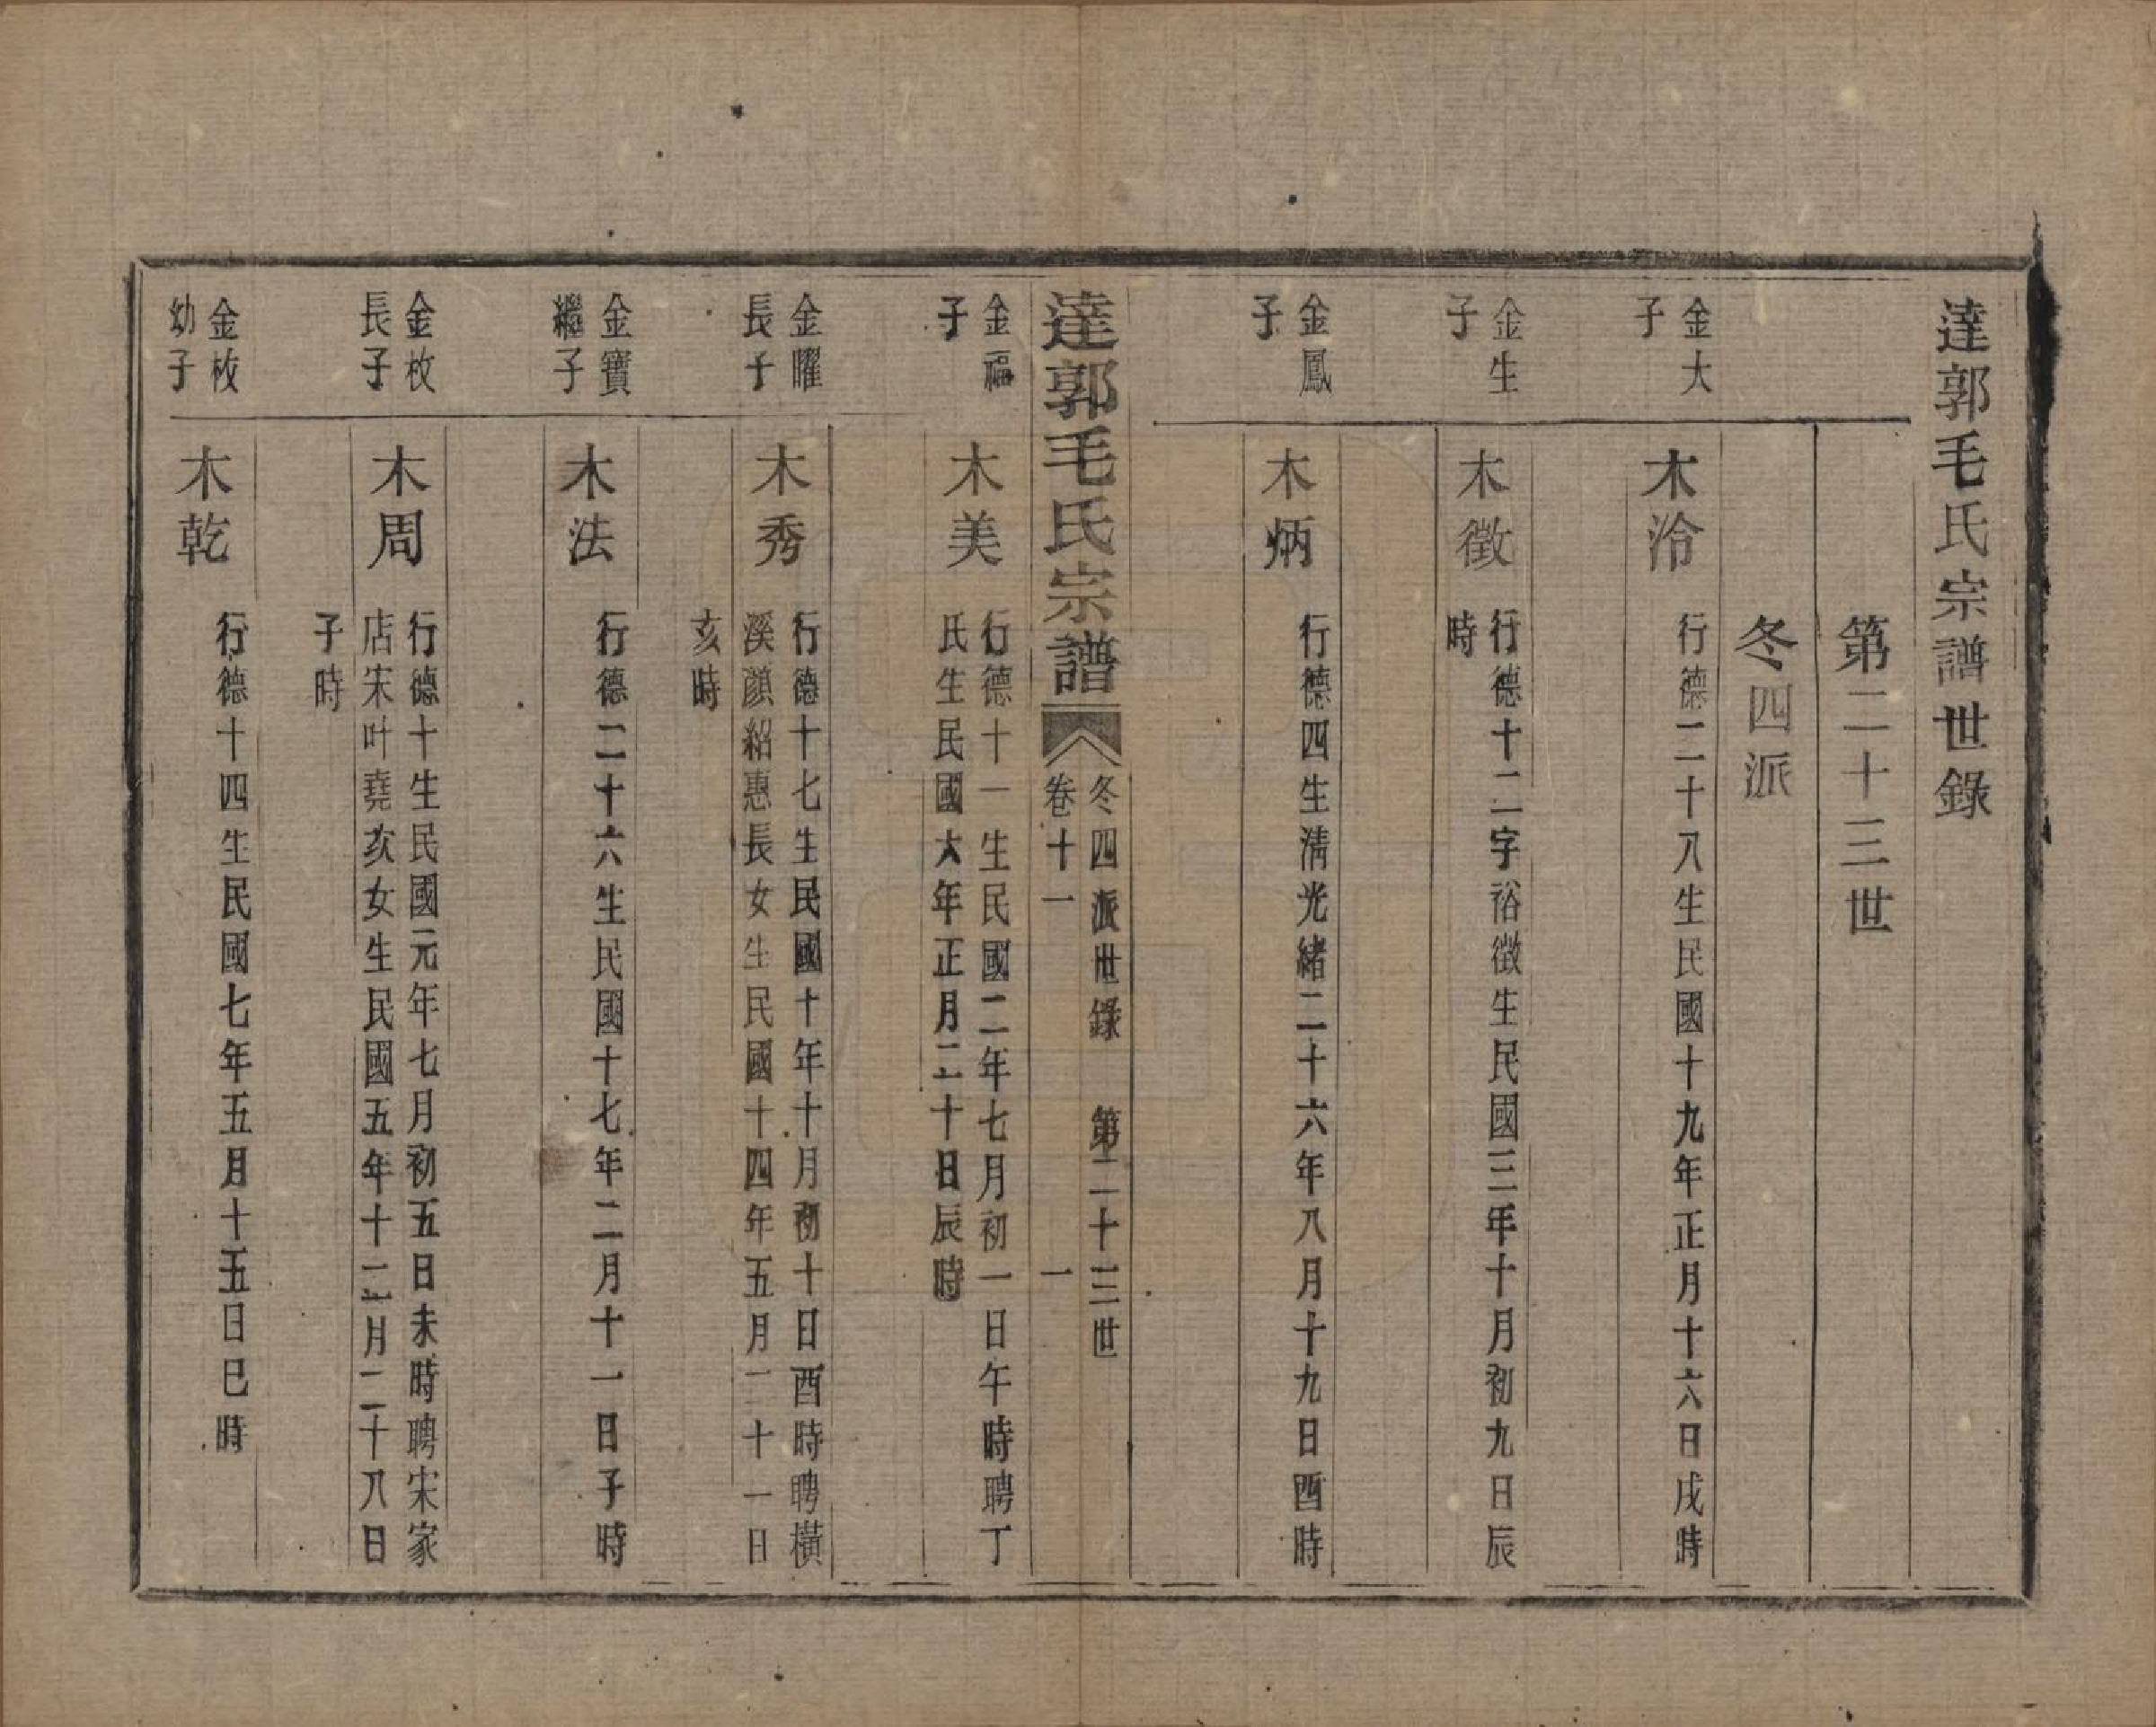 達郭毛氏宗譜世錄
第二十三世
冬四派
金大
子
木泠
行德二十八生民國十九年正月十六日戌時
金生
子
木徵
行德十二字裕徵生民國三年十月初九日辰
時
金鳳
子
木炳
行德四生清光緒二十六年八月十九日酉時
達郭毛氏宗譜
冬四派世錄 第二十三世
卷十一 一
金福
子
木美
行德十一生民國二年七月初一日午時聘丁
氏生民國大年正月二十日辰時
金曜
長子
木秀
行德十七生民國十年十月初十日酉時聘橫
溪顏紹惠長女生民國十四年五月二十一日
亥時
金寶
繼子
木法
行德二十六生民國十七年二月十一日子時
金枚
長子
木周
行德十生民國元年七月初五日未時聘宋家
店宋叶堯次女生民國五年十二月二十八日
子時
金枚
幼子
木乾
行德十四生民國七年五月十五日巳時